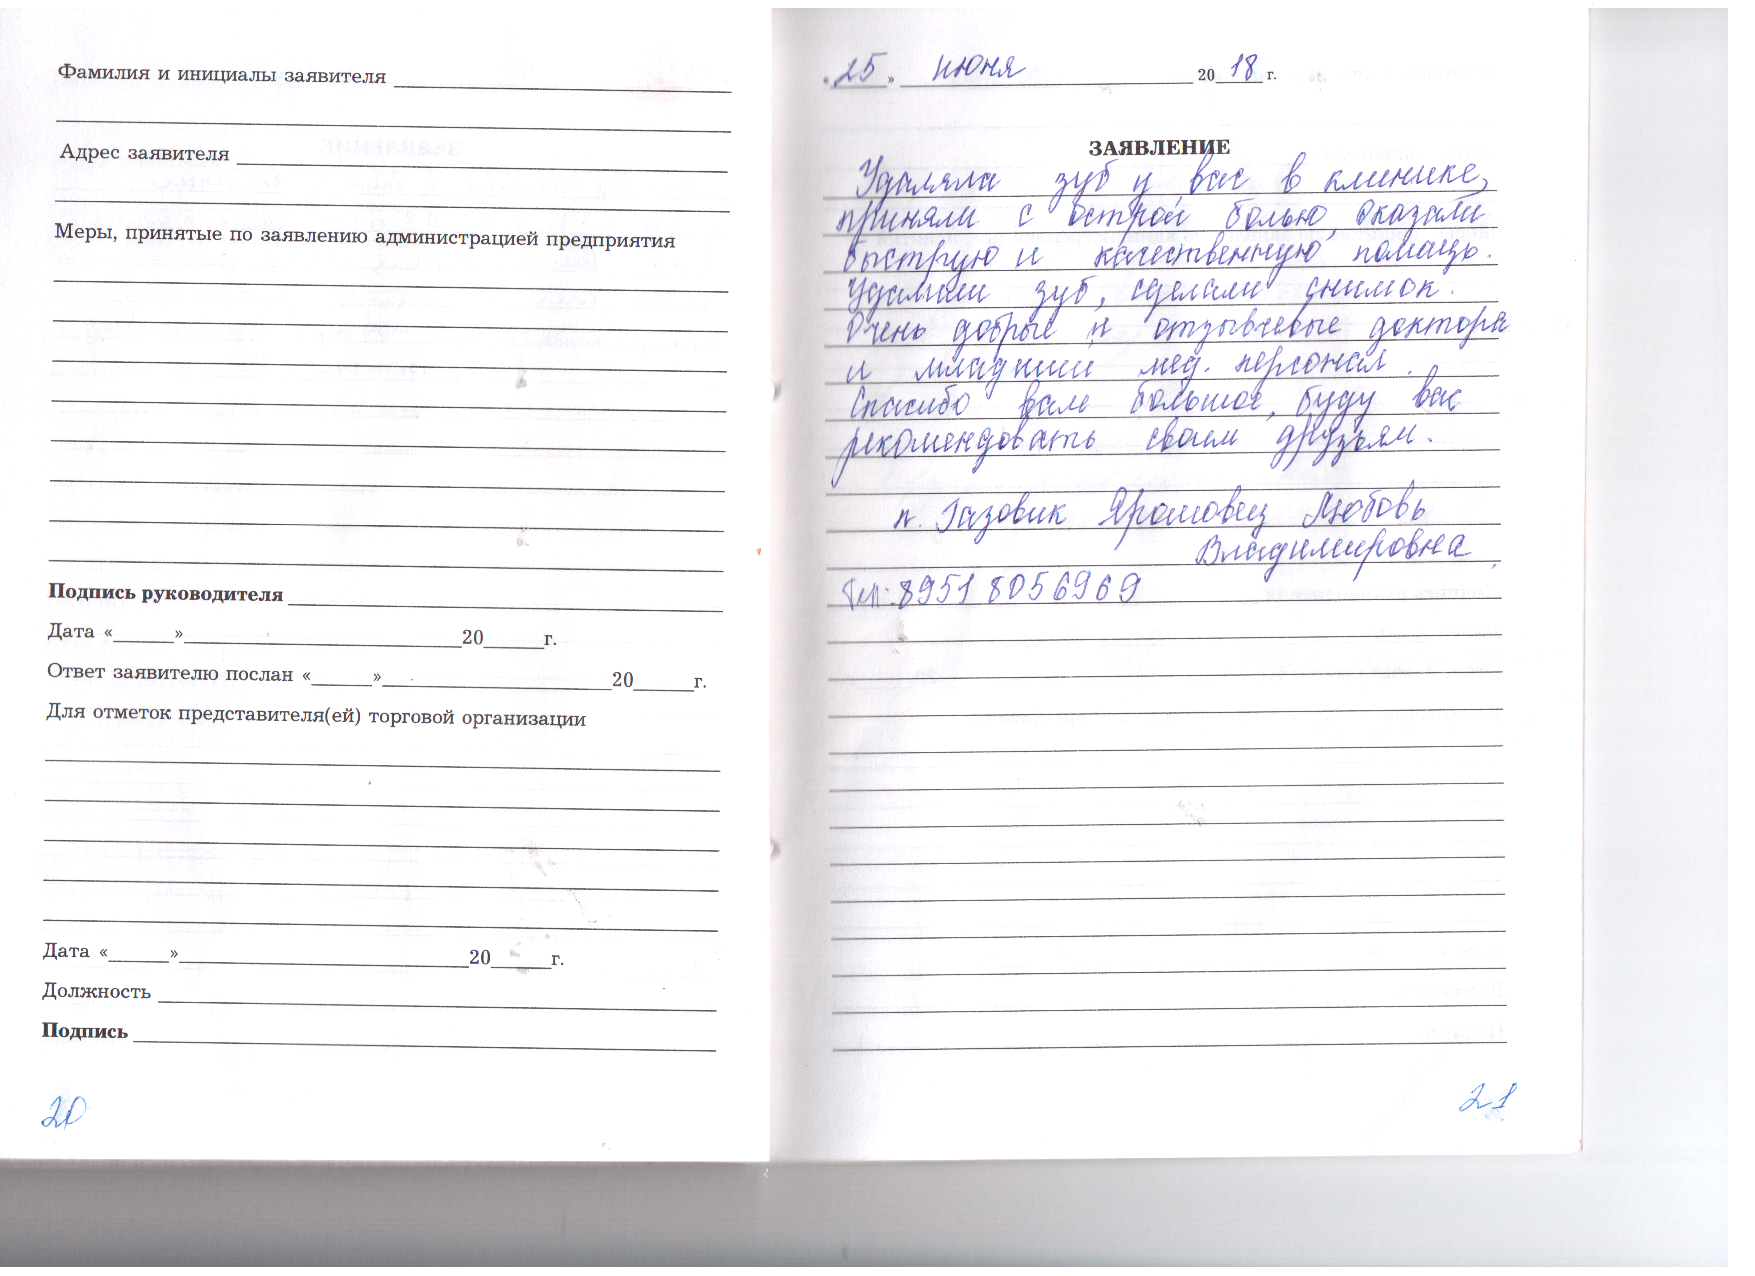 Фамилия и инициалы заявителя
Адрес заявителя
Меры, принятые по заявлению администрацией предприятия
Подпись руководителя
Дата «______»______20______г.
Ответ заявителю послан «______»______20______г.
Для отметок представителя(ей) торговой организации
Дата «______»______20______г.
Должность
Подпись
20
«25» июня 2018 г.
ЗАЯВЛЕНИЕ
Удаляла зуб у вас в клинике,
приняли с острой болью, оказали
быструю и качественную помощь.
Удалили зуб, сделали снимок.
Очень добрые и отзывчевые доктора
и младший мед. персонал.
Спасибо вам большое, буду вас
рекомендовать своим друзьям.
п. Газовик Яромовец Любовь
Владимировна
Тел: 89518056969
21